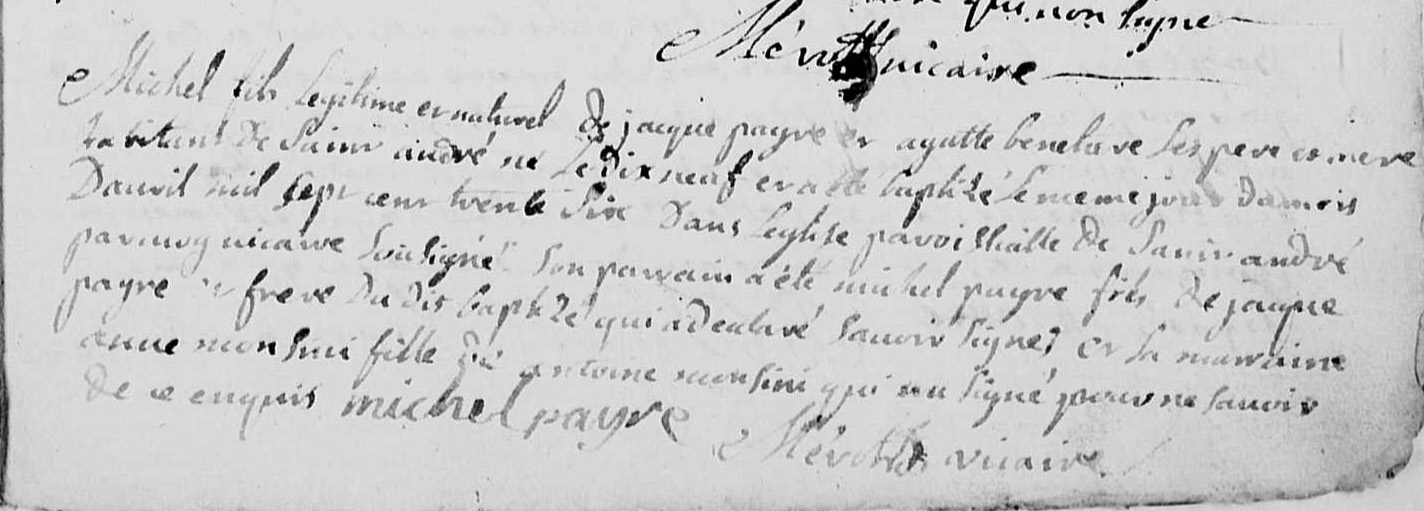 qui non signe
Mérotts vicaire
Michel fils legitime et naturel de jacque payre et agatte benelore ses pere et mere
habitans de Saint andré né le dix neuf et a été baptizé le meme jour du mois
Dauril mil sept cent trente six Dans leglise paroissialle de Saint andré
par moy uicaire Sousigné son parrain a été michel payre fils de jacque
payre et frere du dit baptizé qui a declaré sauoir signer et sa marraine
anne monsini fille de antoine monsini qui na signé pour ne sauoir
de ce enquis michel payre
Mérotts vicaire